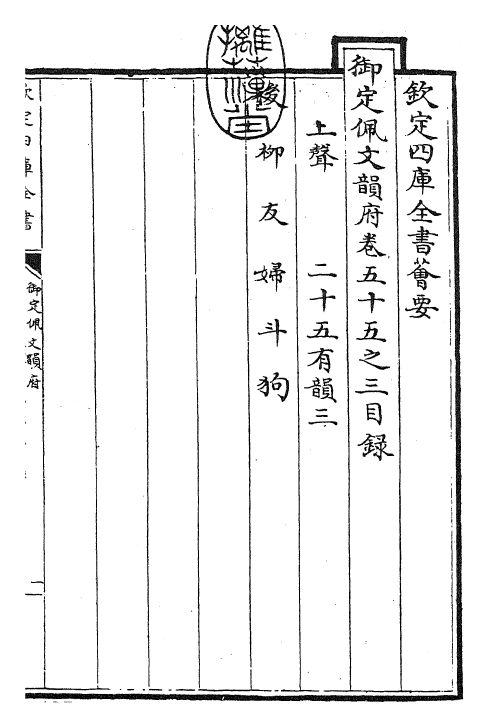 欽定四庫全書薈要
御定佩文韻府卷五十五之三目録
上聲　二十五有韻三
後柳友婦斗狗
欽定四庫全書
御定佩文韻府